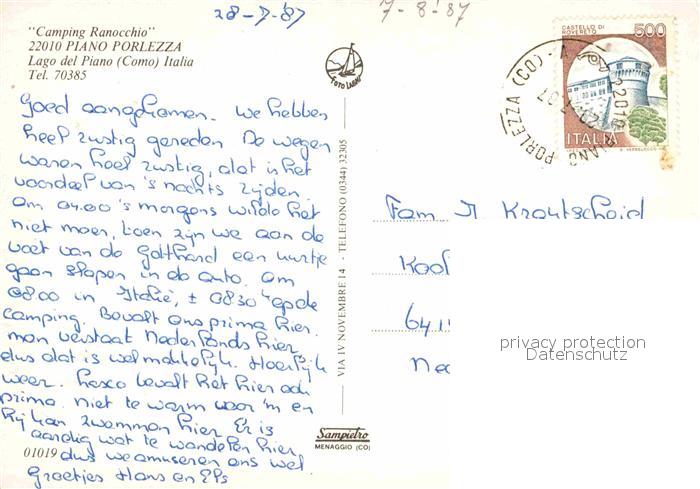 28-7-'87
7-8-'87
"Camping Ranocchio"
22010 PIANO PORLEZZA
Lago del Piano (Como) Italia
Tel. 70385
Goed aangekomen. We hebben
heel rustig gereden De wegen
waren heel rustig, dat is het
voordeel van 's nachts rijden.
Om 04.00 's morgens wilde het
niet meer, toen zijn we aan de
voet van de Gotthard een uurtje
gaan slapen in de auto. Om
08.00 in Italië, ± 0830 op de
camping. Bevalt ons prima hier.
men verstaat Nederlands hier
dus dat is wel makkelijk. Heerlijk
weer. bevalt het hier ook
prima niet te warm voor 'm en
hij kan zwemmen hier Er is
aardig wat te wandelen hier
dus we amuseren ons wel
Groetjes Hans en Els
01019
FOTO LABAR
VIA IV NOVEMBRE 14 - TELEFONO (0344) 32305
Sampietro
MENAGGIO (CO)
CASTELLO DI
ROVERETO
500
ITALIA
22010 PIANO PORLEZZA (CO) - A
Fam. Krautscheid
Kool
64
Ned
privacy protection
Datenschutz